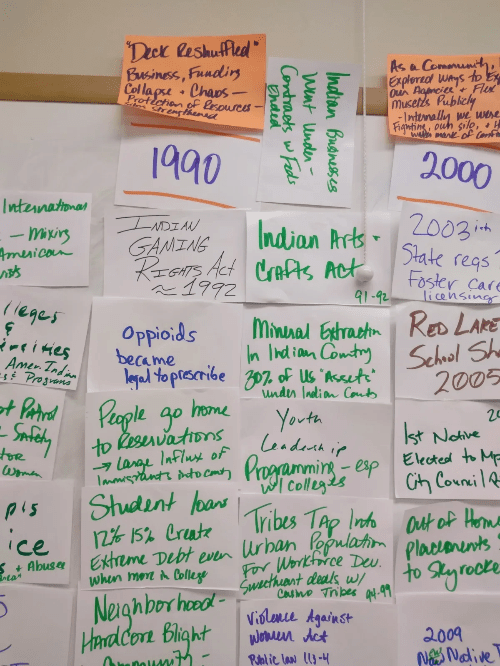 "Deck Reshuffled"
Business, Funding
Collapse + Chaos -
Protection of Resources -
Strengthened
Indian Businesses
Went Under -
Contracts w/ Feds
Ended
As a Community,
Explored ways to
Our Agencies + Flex
muscles Publicly
- Internally we were
Fighting, out silo,
1990
2000
International
- Mixing
American
INDIAN
GAMING
RIGHTS Act
~ 1992
Indian Arts
Crafts Act
91-92
2003 ish
State regs
Foster Care
licensing
&
Amer. Indian
Programs
Oppioids
became
legal to prescribe
Mineral Extraction
In Indian Country
30% of US "Assets"
under Indian
RED LAKE
School
2005
Safety
Women
People go home
to Reservations
→ Large Influx of
Immigrants into
Youth
Leadership
Programming - esp
w/ Colleges
1st Native
Elected to
City Council
ice
+ Abuse
Student loans
12% 15% Create
Extreme Debt even
when more in College
Tribes Tap Into
Urban Population
For Workforce Dev.
Sweetheart deals w/
Casino Tribes
Out of Home
Placements
to Skyrocke
Neighborhood -
Hardcore Blight
Violence Against
Women Act
Public Law
2009
Native